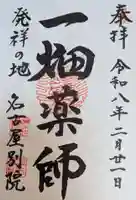 奉拝 令和八年二月廿一日
一畑薬師
発祥の地 名古屋別院